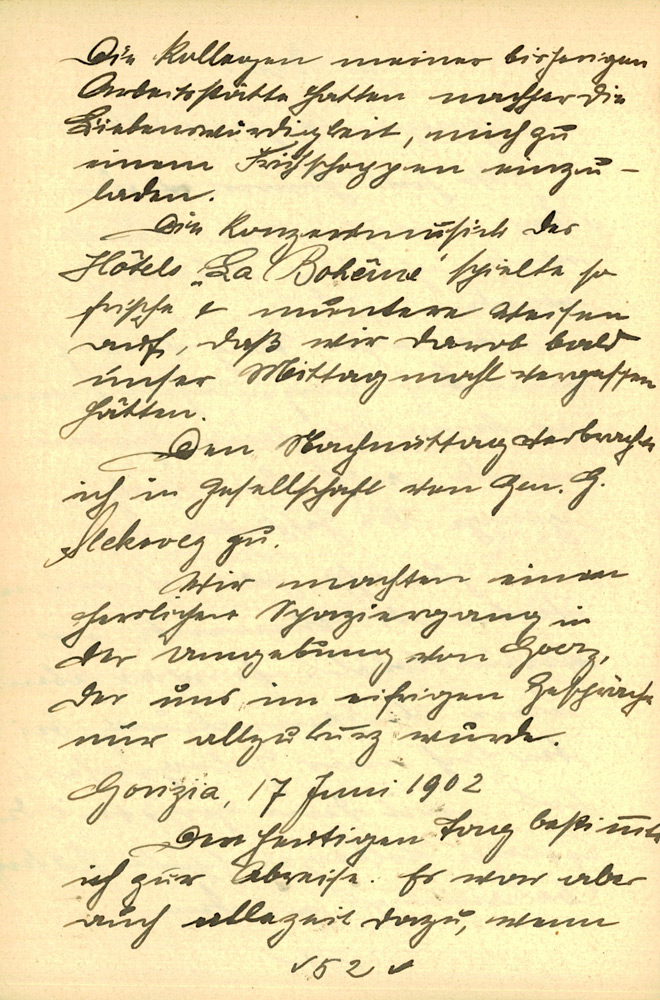 Die Kollegen meiner bisherigen
Arbeitsstätte hatten nachher die
Liebenswürdigkeit, mich zu
einem Frühschoppen einzu-
laden.
Die Konzertmusick des
Hôtels „La Bohême" spielte so
frische & muntere Weisen
auf, daß wir darob bald
unser Mittagmahl vergessen
hätten.
Den Nachmittag verbrachte
ich in Gesellschaft von Gen. G.
zu.
Wir machten einen
herrlichen Spaziergang in
der Umgebung von Goerz,
der uns im eifrigen Gespräche
nur allzukurz wurde.
Gorizia, 17 Juni 1902
Den heutigen Tag bestimmte
ich zur Abreise. Es war aber
auch allezeit dazu, wenn
52